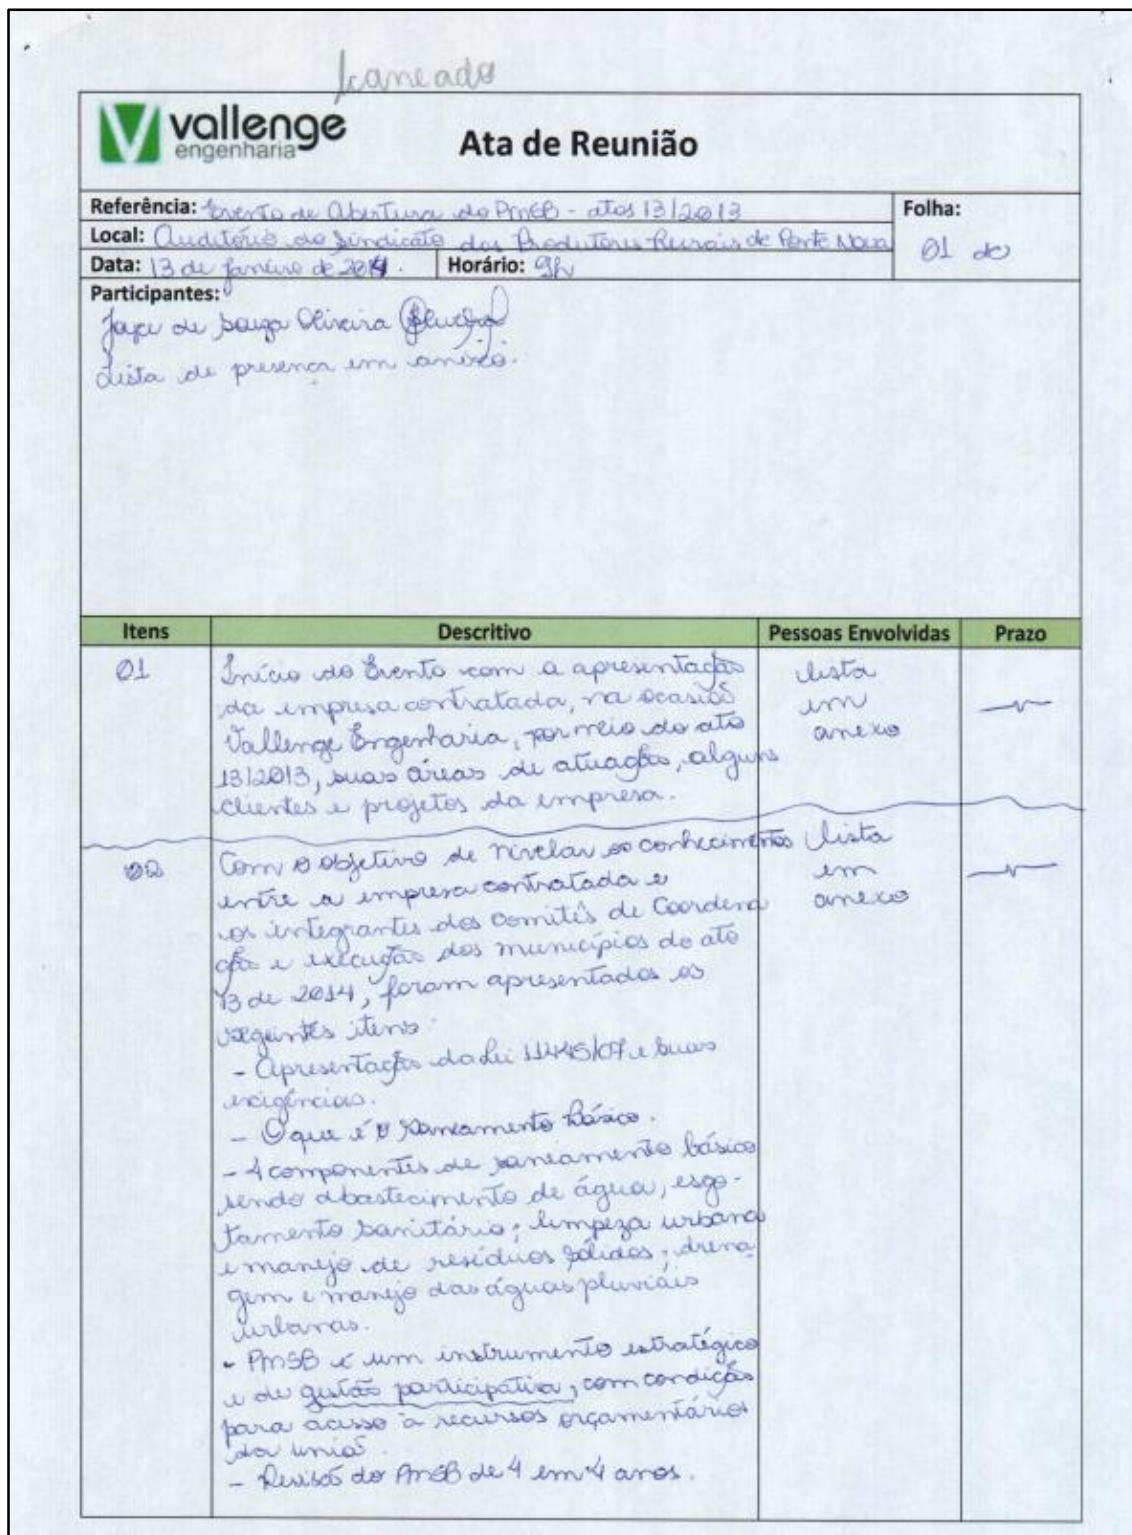 scaneado
vallenge
engenharia
Ata de Reunião
Referência: Evento de Abertura do PMSB - atos 13/2013
Folha:
01 de
Local: Auditório do Sindicato dos Produtores Rurais de Ponte Nova
Data: 13 de janeiro de 2014. Horário: 9h
Participantes:
Joyce de Souza Oliveira
Lista de presença em anexo.
Itens Descritivo Pessoas Envolvidas Prazo
01 Início do Evento com a apresentação lista
da empresa contratada, na ocasião em
Vallenge Engenharia, por meio do ato anexo
13/2013, suas áreas de atuação, alguns
clientes e projetos da empresa.
02 Com o objetivo de nivelar os conhecimentos lista
entre a empresa contratada e em
os integrantes dos comitês de Coordena anexo
ção e execução dos municípios do ato
13 de 2014, foram apresentados os
seguintes itens:
- Apresentação da Lei 11445/07 e suas
exigências.
- O que é o Saneamento Básico.
- 4 componentes de saneamento básico
sendo abastecimento de água, esgo-
tamento sanitário; limpeza urbana
e manejo de resíduos sólidos; drena
gem e manejo das águas pluviais
urbanas.
- PMSB é um instrumento estratégico
e de gestão participativa, com condição
para acesso à recursos orçamentários
da união.
- Revisão do PMSB de 4 em 4 anos.